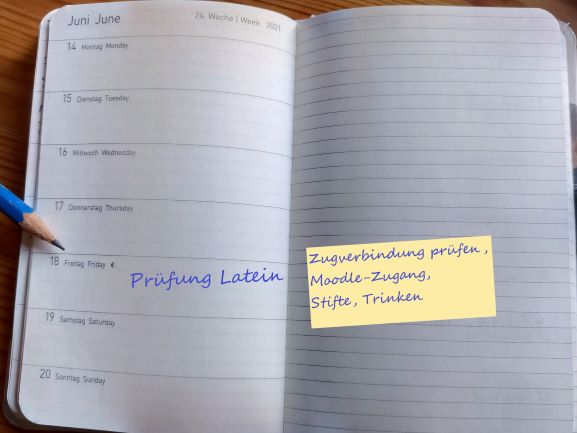 Juni June
24. Woche | Week 2021
14 Montag Monday
15 Dienstag Tuesday
16 Mittwoch Wednesday
17 Donnerstag Thursday
18 Freitag Friday
Prüfung Latein
19 Samstag Saturday
20 Sonntag Sunday
Zugverbindung prüfen,
Moodle-Zugang,
Stifte, Trinken